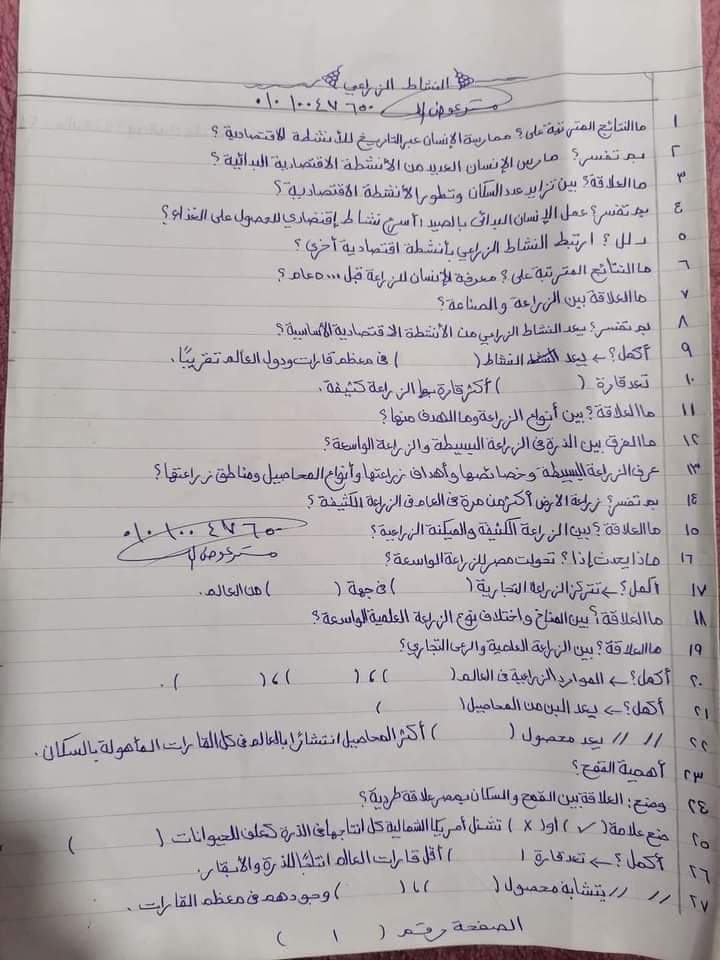 النشاط الزراعي
مستر عوض
٠١٠١٠٠٤٧٦٥٠
١ ما النتائج المترتبة على؟ ممارسة الإنسان عبر التاريخ للأنشطة الاقتصادية؟
٢ بم تفسر؟ مارس الإنسان العديد من الأنشطة الاقتصادية البدائية؟
٣ ما العلاقة؟ بين تزايد عدد السكان وتطور الأنشطة الاقتصادية؟
٤ بم تفسر؟ عمل الإنسان البدائى بالصيد أسرع نشاط إقتصادي للحصول على الغذاء؟
٥ دلل؟ ارتبط النشاط الزراعي بأنشطة اقتصادية أخري؟
٦ ما النتائج المترتبة على؟ معرفة الإنسان للزراعة قبل ٥٠٠٠ عام؟
٧ ما العلاقة بين الزراعة والصناعة؟
٨ بم تفسر؟ يعد النشاط الزراعي من الأنشطة الاقتصادية الأساسية؟
٩ أكمل؟ ← يعد النشاط ( ) فى معظم قارات ودول العالم تقريبًا.
١٠ تعد قارة ( ) أكثر قارة بها زراعة كثيفة.
١١ ما العلاقة؟ بين أنواع الزراعة وما الهدف منها؟
١٢ ما الفرق بين الذرة فى الزراعة البسيطة والزراعة الواسعة؟
١٣ عرف الزراعة البسيطة وخصائصها وأهداف زراعتها وأنواع المحاصيل ومناطق زراعتها؟
١٤ بم تفسر؟ زراعة الارض أكثر من مرة فى العام فى الزراعة الكثيفة؟
١٥ ما العلاقة؟ بين الزراعة الكثيفة والميكنة الزراعية؟
٠١٠١٠٠٤٧٦٥٠
مستر عوض
١٦ ماذا يحدث إذا؟ تحولت مصر للزراعة الواسعة؟
١٧ أكمل؟ ← تتركز الزراعة التجارية ( ) فى جهة ( ) من العالم.
١٨ ما العلاقة؟ بين المناخ واختلاف نوع الزراعة العلمية الواسعة؟
١٩ ما العلاقة؟ بين الزراعة العلمية والرعى التجاري؟
٢٠ أكمل؟ ← الموارد الزراعية فى العالم ( )، ( )، ( ).
٢١ أكمل؟ ← يعد البن من المحاصيل ( )
٢٢ // // يعد محصول ( ) أكثر المحاصيل انتشارًا بالعالم فى كل القارات المأهولة بالسكان.
٢٣ أهمية القمح؟
٢٤ وضح: العلاقة بين القمح والسكان بمصر علاقة طردية؟
٢٥ ضع علامة (✓) أو (x) تستغل أمريكا الشمالية كل انتاجها فى الذرة كعلف للحيوانات ( )
٢٦ أكمل؟ ← تعد قارة ( ) أقل قارات العالم انتاجًا للذرة والأبقار.
٢٧ // // يتشابة محصول ( )، ( ) وجودهم فى معظم القارات.
الصفحة رقم ( ١ )